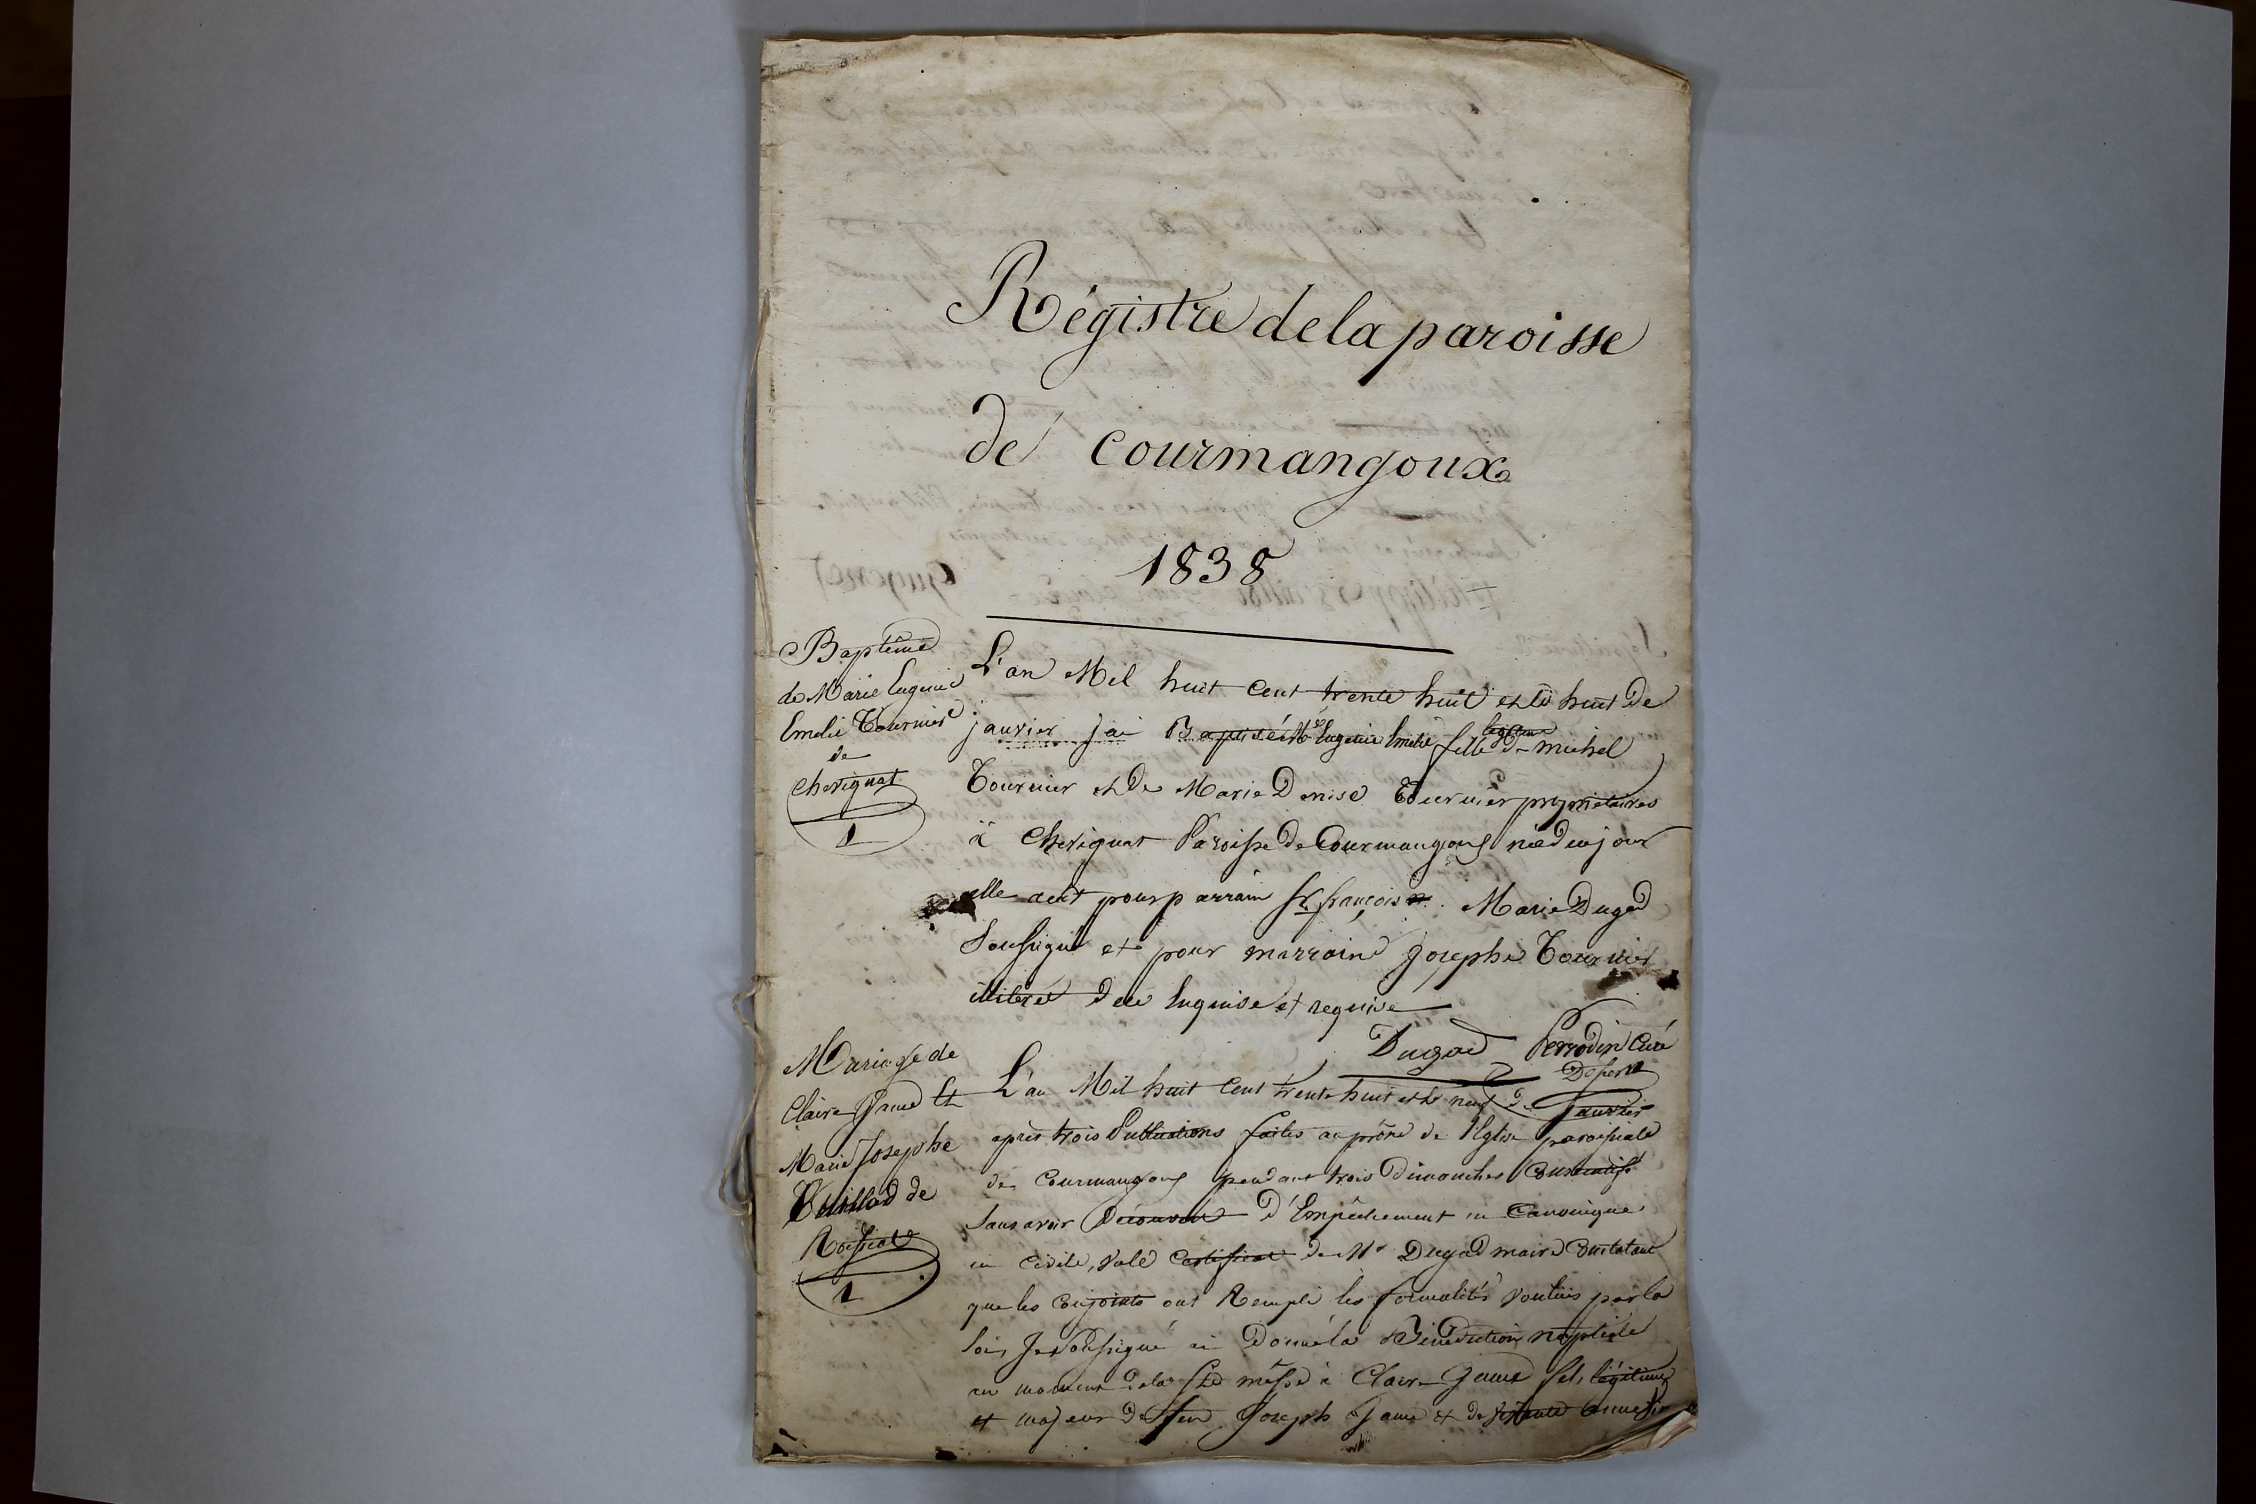 Régistre de la paroisse
de courmangoux
1838
Baptême
de Marie Eugenie
Emelie Tournier
de
chevignat
1
L'an Mil huit cent trente huit et le huit De
janvier j'ai Baptisé Mie Eugenie Emelie fille legitime De michel
Tournier et De Marie Denise Tournier proprietaires
à chevignat Paroisse De Courmangoux née du jour
elle a eut pour parrain fr. françois Marie Dugad
Soussigné et pour marraine Josephe Tournier
illitéré De ce Enquise et requise
Dugad Perrodin Curé
Mariage de
Claire Jame et
Marie Josephe
de
Rossiat
1
L'an Mil huit cent trente huit et le neuf De Janvier
après trois Publications faites au prône de l'Eglise paroissiale
de Courmangoux pendant trois Dimanches Consecutifs
Sans avoir Découvert D'Empêchement ni Canonique
ni Civile, vule Certificat de Mr Dugad maire Constatant
que les Conjoints ont Rempli les formalités voulues par la
loi, Je Soussigné ai Donné la Bénédiction nuptiale
au moment de la Ste messe à Claire Jame fils légitime
et majeur De feu Joseph Jame et de